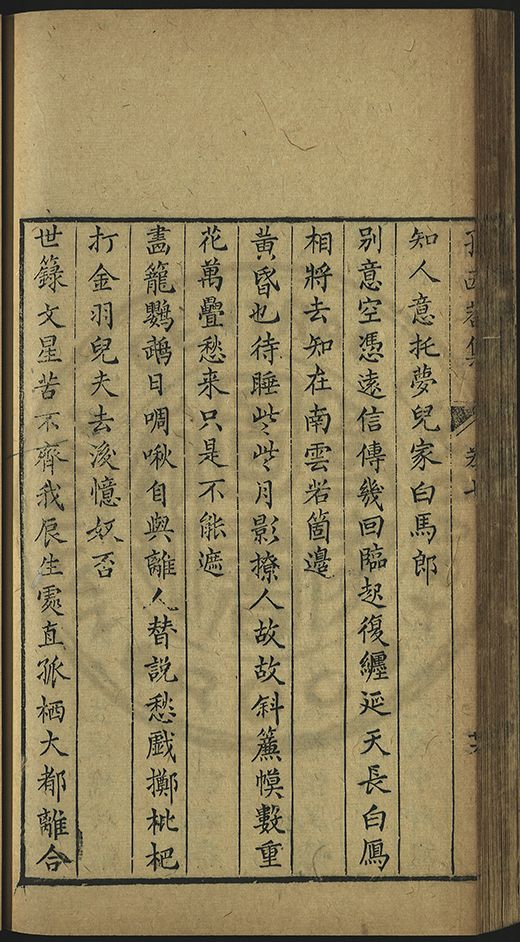 卷七
知人意托夢兒家白馬郎
別意空憑遠信傳幾回臨起復纏延天長白鳫
相將去知在南雲若箇邊
黃昏也待睡些些月影撩人故故斜簾幙數重
花萬疊愁来只是不能遮
畵籠鸚鵡日啁啾自與離人替說愁戲擲枇杷
打金羽兒夫去後憶奴否
世籙文星苦不齊我辰生䖏直孤栖大都離合